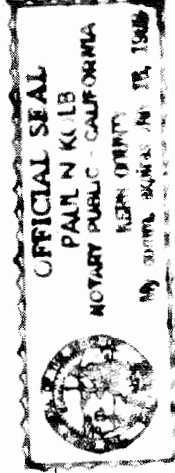 OFFICIAL SEAL
PAUL N KOLB
NOTARY PUBLIC - CALIFORNIA
KERN COUNTY
My comm. expires 18, 19